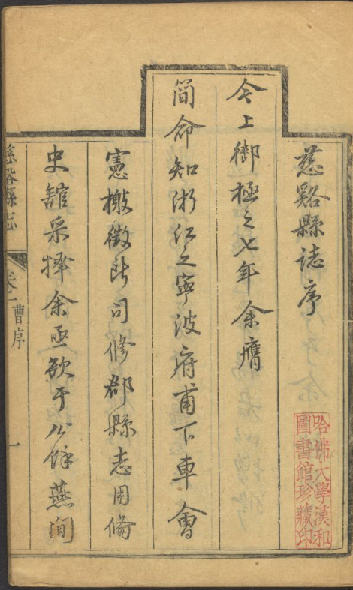 慈谿縣誌序
今上御極之七年余膺
簡命知浙江之寧波府甫下車會
憲檄徵所司修郡縣志用備
史館采擇余亟欲于公餘燕閒
慈谿縣志
卷一
曹序
一
哈佛大學漢和
圖書館珍藏印